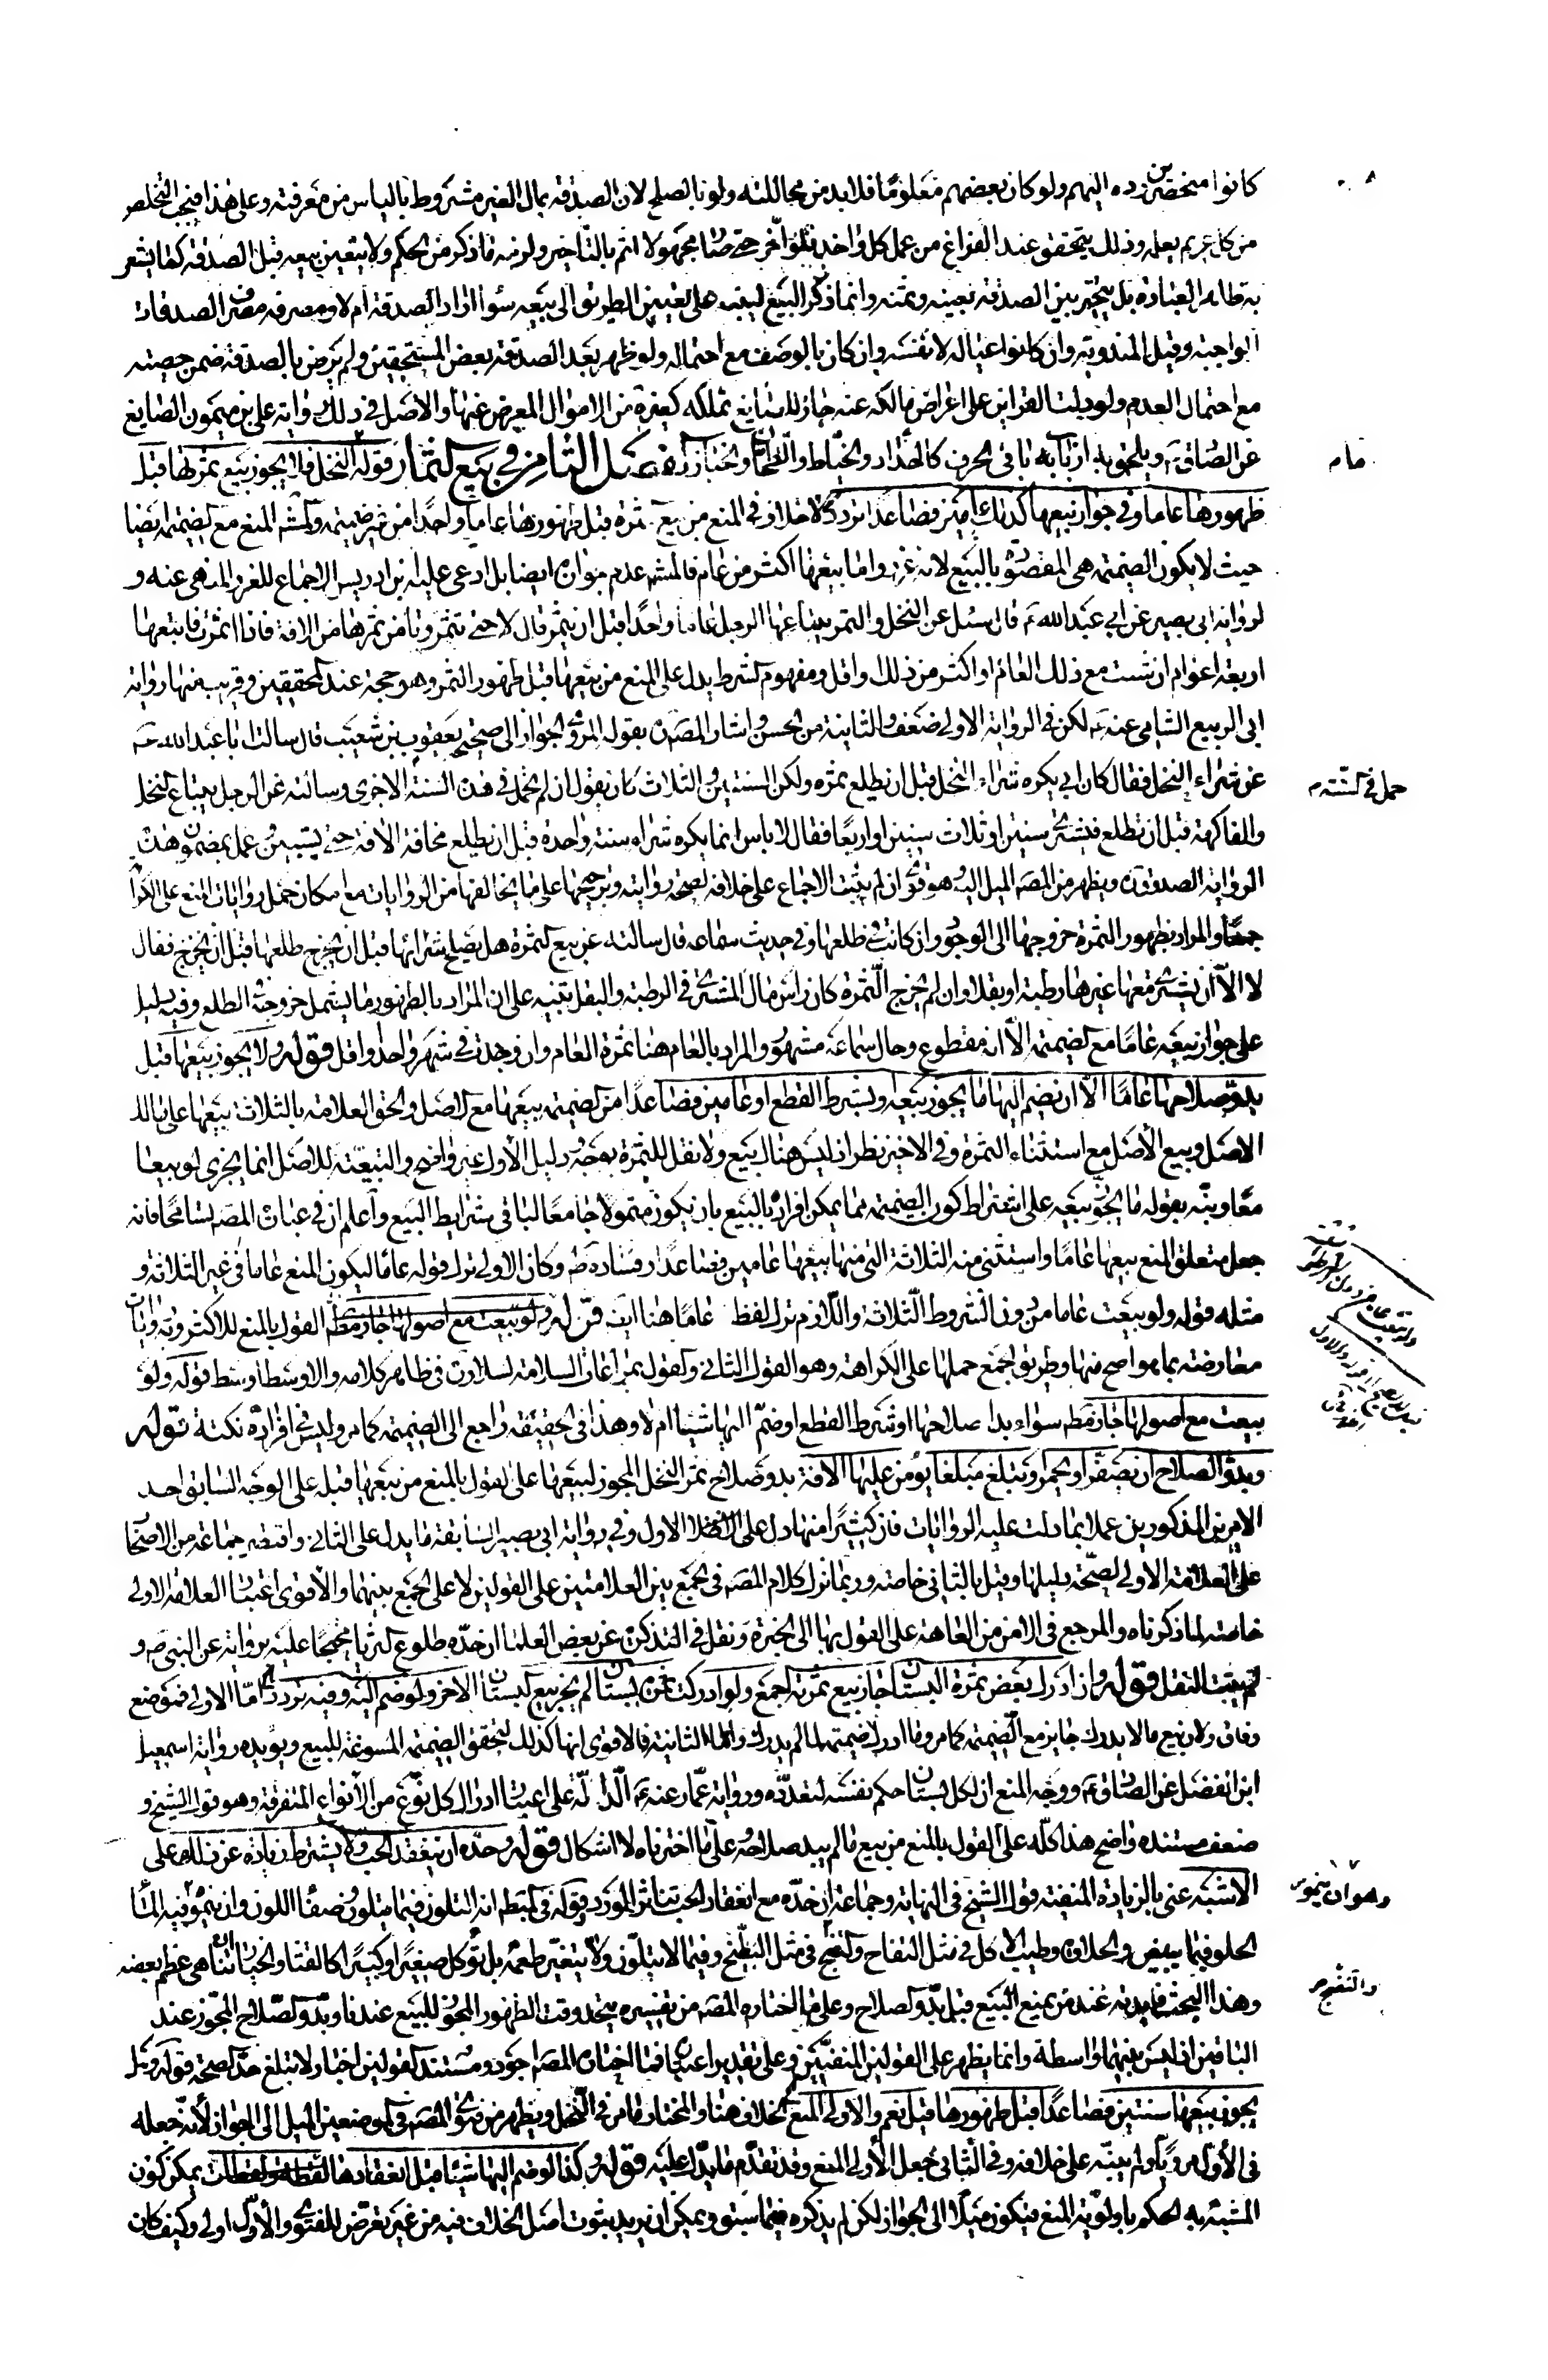 كانوا منحصرين رده اليهم ولو كان بعضهم معلوما فلا بد من محاللته ولو بالصلح لان الصدقة بمال الغير مشروط باليأس من معرفته وعلى هذا فيجب التخلص
من كل غريم يعلمه وذلك يتحقق عند الفراغ من عمل كل واحد فلو اخر حتى صار مجهولا اثم بالتاخير ولزمه ما ذكر من الحكم ولا يتعين بيعه قبل الصدقة كما يشعر
به ظاهر العبارة بل يتخير بين الصدقة بعينه وبثمنه وانما ذكر البيع لينبه على تعيين الطريق الى بيعه سواء اراد الصدقة ام لا ومصرفه مصرف الصدقات
الواجبة وقيل المندوبة وان كانوا عياله لا نفسه وان كان بالوصف مع احتماله ولو ظهر بعد الصدقة بعض المستحقين ولم يرض بالصدقة ضمن حصته
مع احتمال العدم ولو دلت القراين على اعراض مالكه عنه جاز للصايغ تملكه كغيره من الاموال المعرض عنها والاصل في ذلك رواية على بن ميمون الصايغ
عن الصادق ع ويلحق به ارباب باقي الحرف كالحداد والخياط والطحان والخباز الفصل الثامن في بيع الثمار قوله النخل فلا يجوز بيع ثمرتها قبل
ظهورها عاما وفي جواز بيعها كذلك عامين فصاعدا تردد لا خلاف في المنع من بيع ثمرة قبل ظهورها عاما واحدا من غير ضميمة والمشهور المنع مع الضميمة ايضا
حيث لا يكون الضميمة هي المقصودة بالبيع لانه غرر واما بيعها اكثر من عام فالمشهور عدم جوازه ايضا بل ادعى عليه ابن ادريس الاجماع للغرر المنهى عنه و
لرواية ابي بصير عن ابي عبد الله ع قال سئل عن النخل والتمر يبتاعها الرجل عاما واحدا قبل ان يثمر قال لا حتى تثمر وتامن ثمرتها من الافة فاذا اثمرت فابتعها
اربعة اعوام ان شئت مع ذلك العام او اكثر من ذلك او اقل ومفهوم الشرط يدل على المنع من بيعها قبل ظهور الثمر وهو حجة عند المحققين وقريب منها رواية
ابي الربيع الشامي عنه ع لكن في الرواية الاولى ضعف والثانية من الحسن واشار المصنف بقوله المروي الجواز الى صحيحة يعقوب بن شعيب قال سالت ابا عبد الله ع
عن شراء النخل فقال كان ابي يكره شراء النخل قبل ان يطلع ثمره ولكن السنتين والثلاث كان يقول ان لم يحمل في هذه السنة الاخرى وسالته عن الرجل يبتاع النخل
حمل في السنة
والفاكهة قبل ان تطلع فيشترى سنتين او ثلاث سنين او اربعا فقال لا باس انما يكره شراء سنة واحدة قبل ان يطلع مخافة الافة حتى يستبين وعمل بمضمون هذه
الرواية الصدوق ويظهر من المصنف الميل اليه وهو قوى ان لم يثبت الاجماع على خلافه لصحة روايته وترجيحها على ما يخالفها من الروايات مع امكان حمل روايات المنع على الكراهة
جمعا والمراد بظهور الثمرة خروجها الى الوجود وان كانت في طلعها وفي حديث سماعة قال سالته عن بيع الثمرة هل يصلح شرائها قبل ان يخرج طلعها قبل ان يخرج فقال
لا الا ان يشترى معها غيرها رطبة او بقلا وان لم يخرج الثمرة كان راس مال المشترى في الرطبة والبقل تنبيه على ان المراد بالظهور ما يشمل خروجه في الطلع وفيه دليل
على جواز بيعه عاما مع الضميمة الا انه مقطوع وحال سماعة مشهور والمراد بالعام هنا ثمرة العام وان وجدت في شهر واحد او اقل قوله ولا يجوز بيعها قبل
بدو صلاحها عاما الا ان يضم اليها ما يجوز بيعه او بشرط القطع او عامين فصاعدا من الضميمة بيعها مع الاصل والحق العلامة بالثلاث بيعها على مالك
الاصل وبيع الاصل مع استثناء الثمرة وفي الاخير نظر اذ ليس هناك بيع ولا نقل للثمرة بوجه ودليل الاول غير واضح والتبعية للاصل انما يجزى لو بيعا
معا ونبه بقوله ما يجوز بيعه على اشتراط كون الضميمة مما يمكن افراده بالبيع بان يكون متمولا جامعا لباقي شرايط البيع واعلم ان في عبارة المصنف تسامحا فانه
جعل متعلق المنع بيعها عاما واستثنى منه الثلاثة التي منها بيعها عامين فصاعدا وفساده ظ وكان الاولى ترك قوله عاما ليكون المنع عاما في غير الثلاثة و
مثله قوله ولو بيعت عاما من دون الشروط الثلاثة واللازم ترك لفظ عاما هنا ايضا قوله ولو بيعت مع اصولها جاز مطلقا القول بالمنع للاكثر وبه روايات
معارضة بما هو اصح منها وطريق الجمع حملها على الكراهة وهو القول الثاني والقول بمراعات السلامة لسلار في ظاهر كلامه والاوسط اوسط قوله ولو
بيعت مع اصولها جاز مطلقا سواء بدا صلاحها او شرط القطع او ضم اليها شيئا ام لا وهذا في الحقيقة راجع الى الضميمة كما مر وليس في افراده نكتة قوله
وبدو الصلاح ان يصفر او يحمر او تبلغ مبلغا يؤمن عليها الافة بدو صلاح ثمر النخل المجوز لبيعها على القول بالمنع من بيعها قبله على الوجه السابق احد
الامرين المذكورين عملا بما دلت عليه الروايات فان كثيرا منها دل على الاول وفي رواية ابي بصير السابقة ما يدل على الثاني واقتصر جماعة من الاصحاب
على العلامة الاولى لصحة دليلها وقيل بالثاني خاصة وربما نزل كلام المصنف في الجمع بين العلامتين على القولين لا على الجمع بينهما والاقوى اعتبار العلامة الاولى
خاصة لما ذكرناه والمرجع في الامن من العاهة على القول بها الى الخبرة ونقل في التذكرة عن بعض العلماء ان حده طلوع الثريا محتجا عليه برواية عن النبي ص و
لم يثبت النقل قوله واذا ادرك بعض ثمرة البستان جاز بيع ثمرته اجمع ولو ادركت ثمرة بستان لم يجز بيع البستان الاخر ولو ضم اليه وفيه تردد اما الاولى فموضع
وفاق ولان بيع ما لا يدرك جايز مع الضميمة كما مر وما ادرك ضميمة لما لم يدرك واما الثانية فالاقوى انها كذلك لتحقق الضميمة المسوغة للبيع ويؤيده رواية اسمعيل
ابن الفضل عن الصادق ع ووجه المنع ان لكل بستان حكم نفسه لتعدده ورواية عمار عنه ع الدالة على اعتبار ادراك كل نوع من الانواع المتفرقة وهو قول الشيخ و
ضعف مستنده واضح هذا كله على القول بالمنع من بيع ما لم يبد صلاحه وعلى ما اخترناه لا اشكال قوله وحده ان ينعقد الحب ولا يشترط زيادة عن ذلك على
الاشبه عنى بالزيادة المنفية قول الشيخ في النهاية وجماعة ان حده مع انعقاد الحب تناثر الورد وقوله في المبسوط انه التلون فيما يتلون وصفا اللون وان يتموه فيه الماء
وهو ان يتموه
الحلو فيما يبيض والحلاوة وطيب الاكل في مثل التفاح والنضج في مثل البطيخ وفيما لا يتلون ولا يتغير طعمه بل يؤكل صغيرا وكبيرا كالقثاء والخيار تناهى عظم بعضه
والنضج
وهذا البحث فايدته عند من يمنع البيع قبل بدو الصلاح وعلى ما اختاره المصنف من تفسيره يتحد وقت الظهور المجوز للبيع عندنا وبدو الصلاح المجوز عند
الباقين اذ ليس بينهما واسطة وانما يظهر على القولين المنفيين وعلى تقدير اعتباره فما اختاره المصنف اجود ومستند القولين اخبار لا تبلغ حد الصحة قوله وهل
يجوز بيعها سنتين فصاعدا قبل ظهورها قيل نعم والاولى المنع الخلاف هنا والمختار ما مر في النخل ويظهر من فتوى المصنف في الموضعين الميل الى الجواز لانه جعله
في الاول مرويا ولم ينبه على خلافه وفي الثاني جعل الاولى المنع وقد تقدم ما يدل عليه قوله وكذا لو ضم اليها شيئا قبل انعقادها يمكن كون
المشبه به الحكم باولوية المنع فيكون ميلا الى الجواز لكن لم يذكره فيما سبق ويمكن ان يريد ثبوت اصل الخلاف فيه من غير تعرض للفتوى والاول اولى وكيف كان